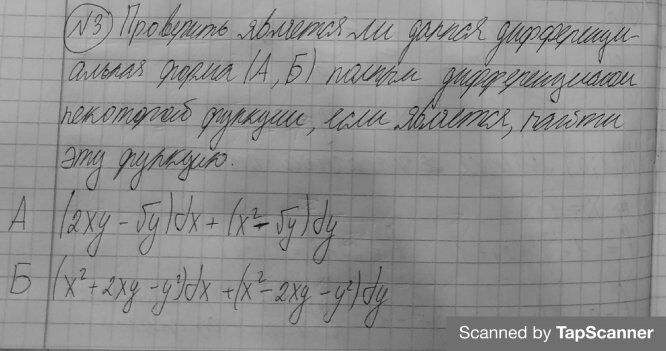 №3 Проверить является ли данная дифференци-
альная форма (А, Б) полным дифференциалом
некоторой функции, если является, найти
эту функцию.
А (2xy - √y)dx + (x² - √y)dy
Б (x² + 2xy - y²)dx + (x² - 2xy - y²)dy
Scanned by TapScanner